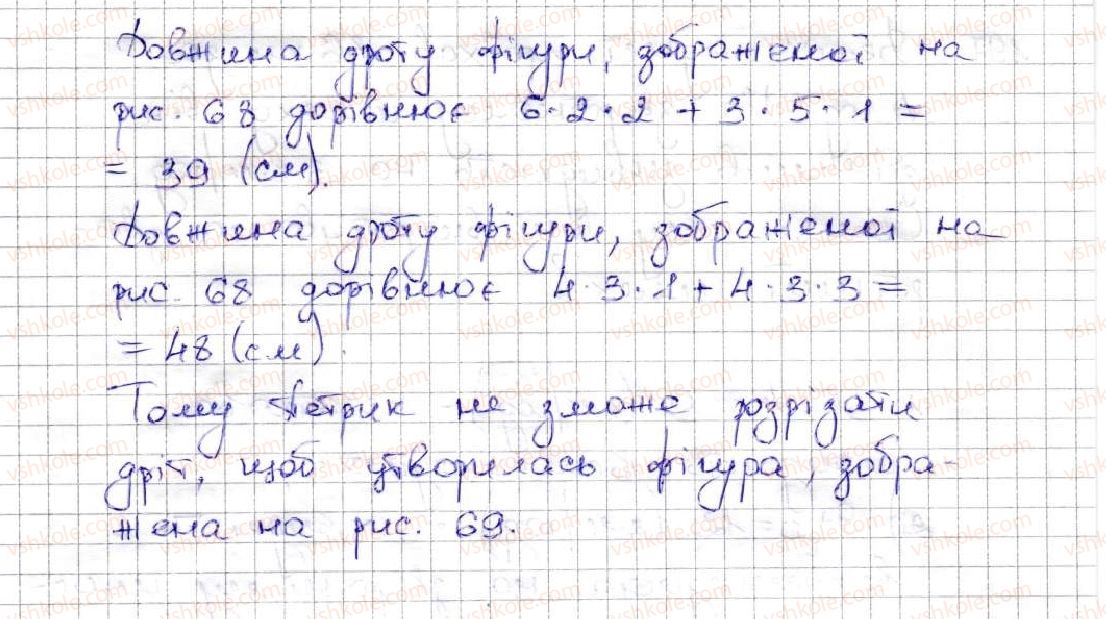 Довжина дроту фігури, зображеної на
рис. 68 дорівнює 6·2·2 + 3·5·1 =
= 39 (см).
Довжина дроту фігури, зображеної на
рис. 68 дорівнює 4·3·1 + 4·3·3 =
= 48 (см).
Тому Петрик не зможе розрізати
дріт, щоб утворилась фігура, зобра-
жена на рис. 69.
vshkole.com